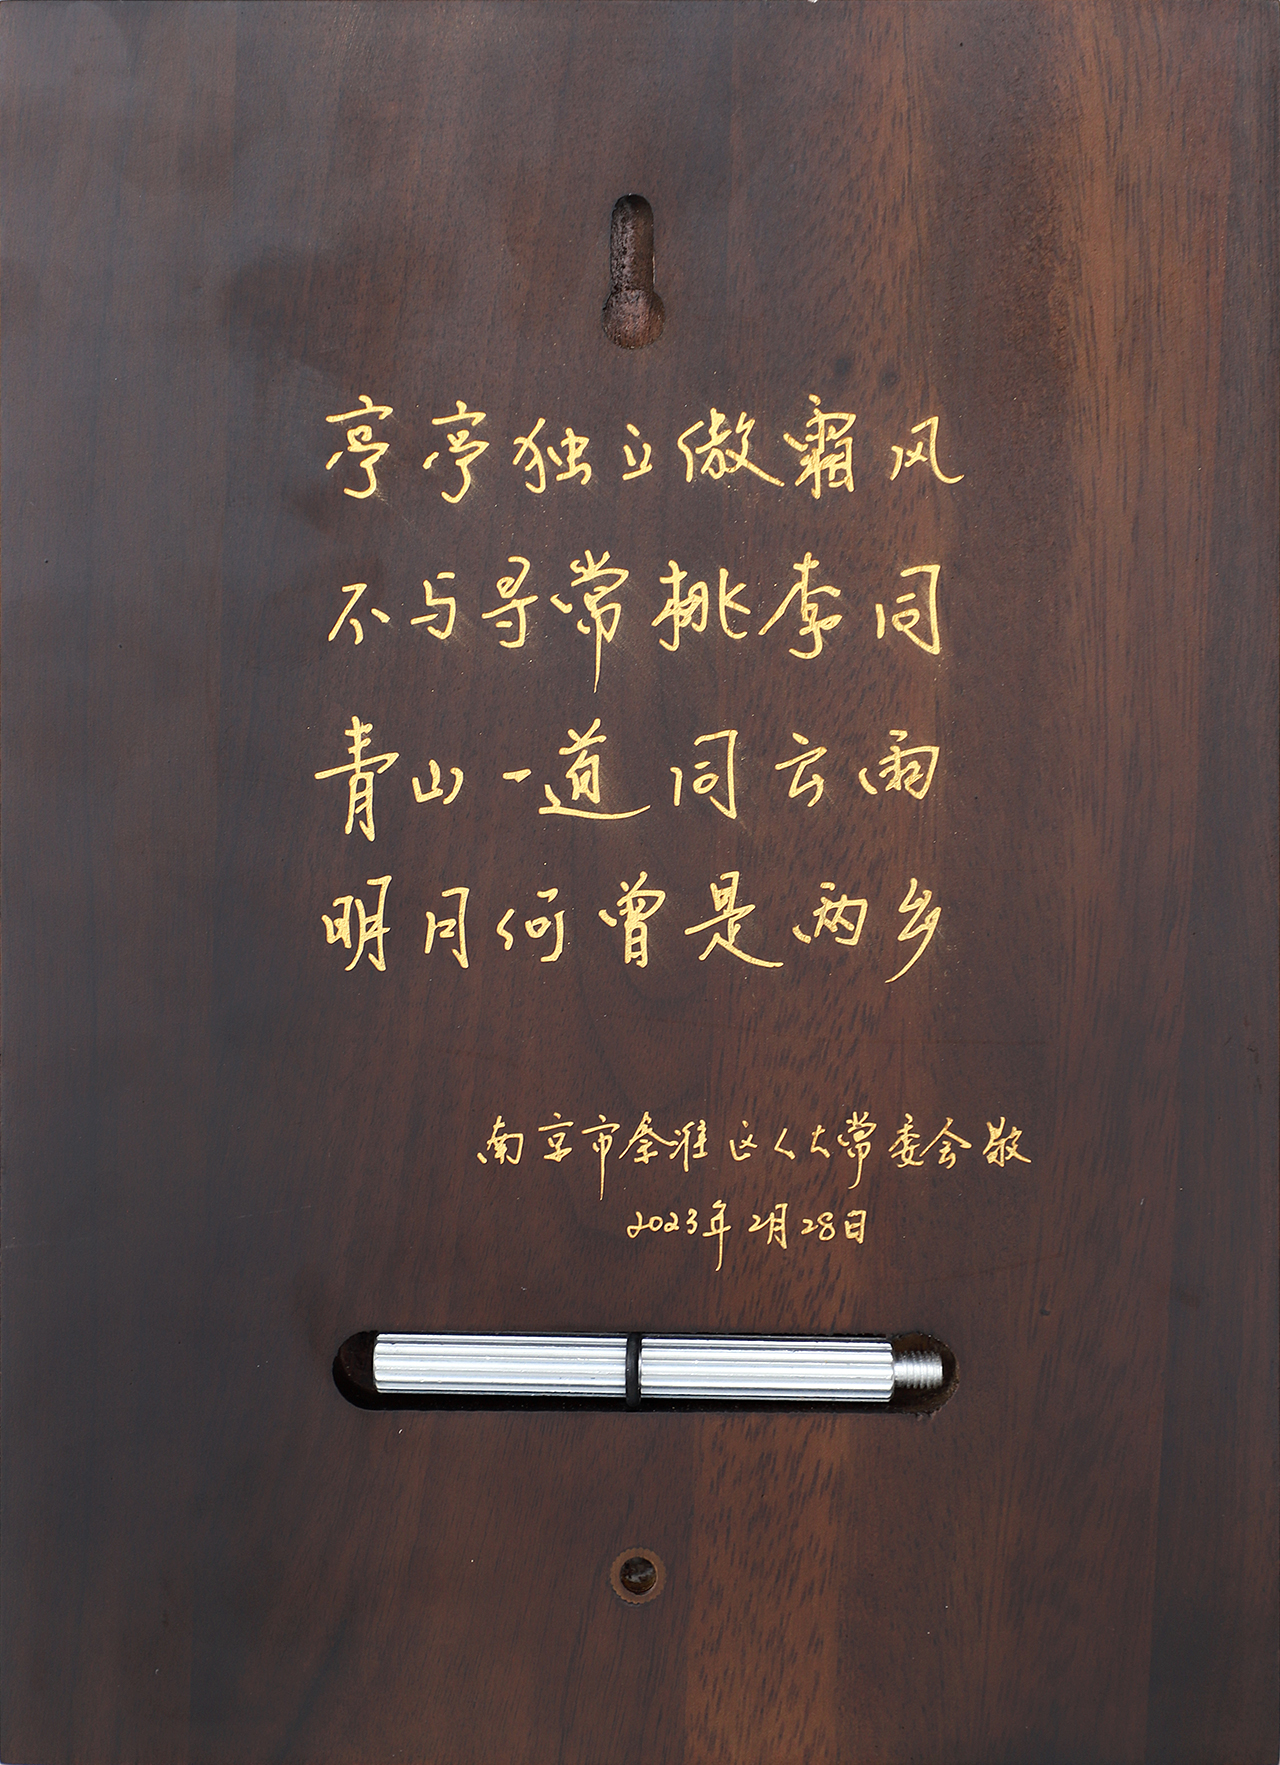 亭亭独立傲霜风
不与寻常桃李同
青山一道同云雨
明月何曾是两乡
南京市秦淮区人大常委会敬
2023年2月28日